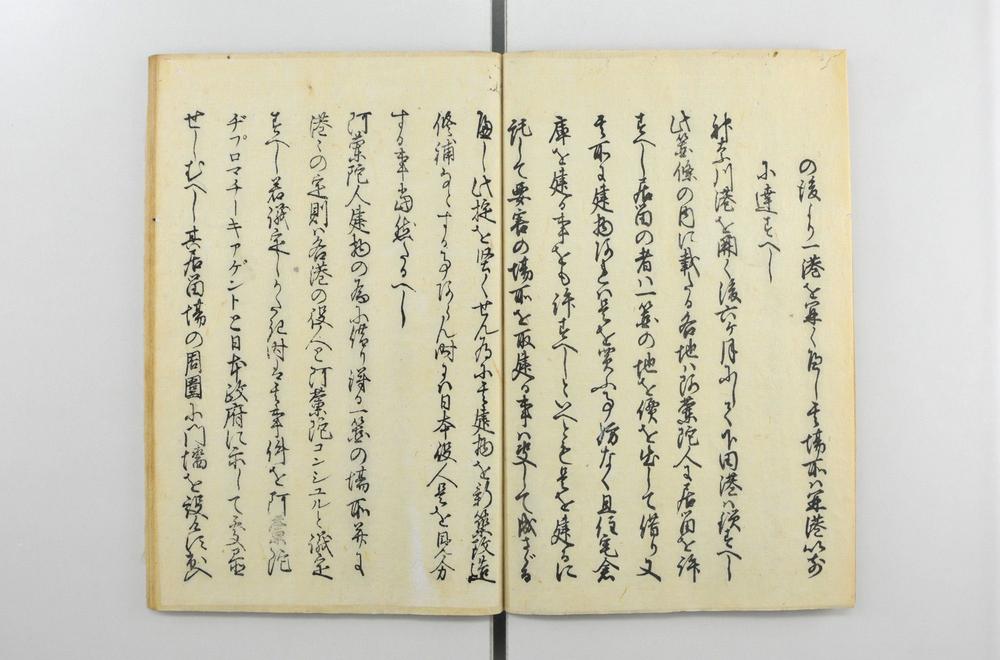 の後より一港を開くへし其場所ハ開港以前
に達すへし
神奈川港を開く後六ヶ月にして下田港ハ鎖すへし
此箇條の内に載たる各地ハ阿蘭陀人に居留を許
すへし居留の者ハ一箇の地を價を出して借り又
其所に建物あれハ是を買ふ事妨なく且住宅倉
庫を建る事をも許すへしといへとも是を建るに
託して要害の場所を取建る事ハ決して成さゝる
へし此掟を堅くせん為に其建物を新築改造
修補なとする事あらん時にハ日本役人是を見分
する事當然たるへし
阿蘭陀人建物の為に借り得る一箇の場所并に
港々の定則ハ各港の役人と阿蘭陀コンシユルと議定
すへし若議定しかたき時ハ其事件を阿蘭陀
ヂプロマチーキアゲントと日本政府に示して處置
せしむへし其居留場の周圍に門墻を設けす出入